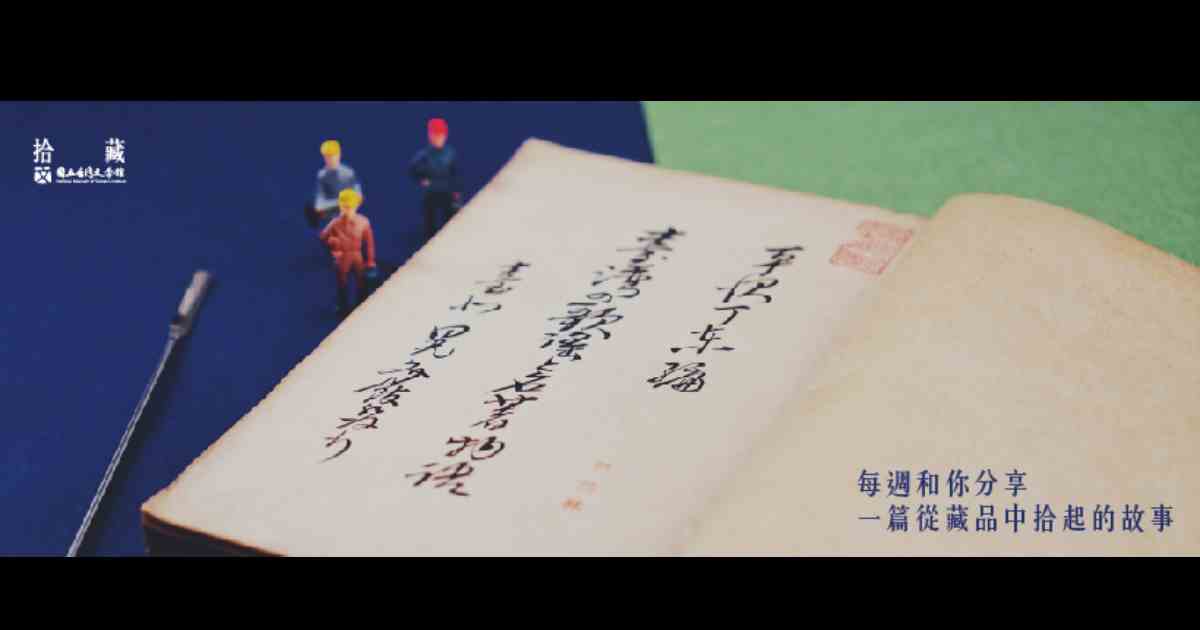 拾藏
國立台灣文學館
National Museum of Taiwan Literature
平沢丁東編
臺湾の歌謡と名著物語
每週和你分享
一篇從藏品中拾起的故事